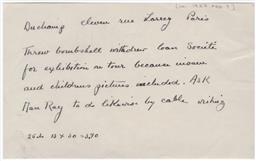 Duchamp eleven rue Larrey Paris
Threw bombshell withdrew loan Société
for exhibition on tour because insane
and children pictures included. Ask
Man Ray to do likewise by cable writing